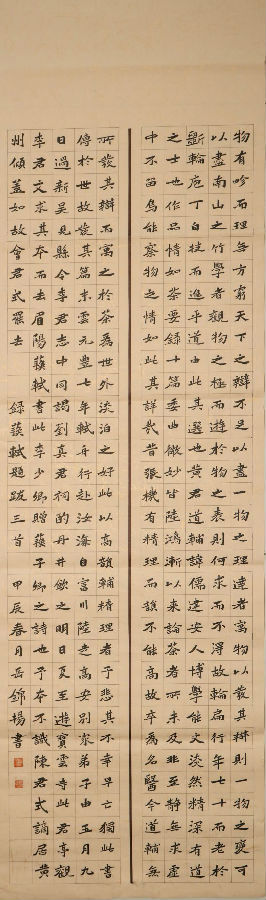 物有畛而理無方窮天下之辯不足以盡一物之理達者寓物以發其辯則一物之變可
以盡南山之竹學者觀物之極而游於物之表則何求而不得故輪扁行年七十而老於
斲輪庖丁自技而進乎道由此其選也黃君道輔諱儒建安人博學能文淡然精深有道
之士也作品情如茶要錄十篇委曲微妙皆陸鴻漸以来論茶者所未及非至静無求虛
中不留烏能察物之情如此其詳哉昔張機有精理而韻不能高故卒為名醫今道輔無
所發其辯而寓之於茶為世外淡泊之好此以高韻輔精理者予悲其不幸早亡獨此書
傳於世故發其篇末云元豐七年軾舟行赴汝海自富川陸走高安別家弟子由五月九
日過新吳見縣令李君志中同謁劉真君祠酌丹井飲之明日夏至遊寶雲寺此君亭觀
李君文求其本而去眉陽蘇軾書此李少卿贈蘇子卿之詩也予本不識陳君式謫居黃
州傾蓋如故會君式罷去 錄蘇軾題跋三首 甲辰春月岳錦場書